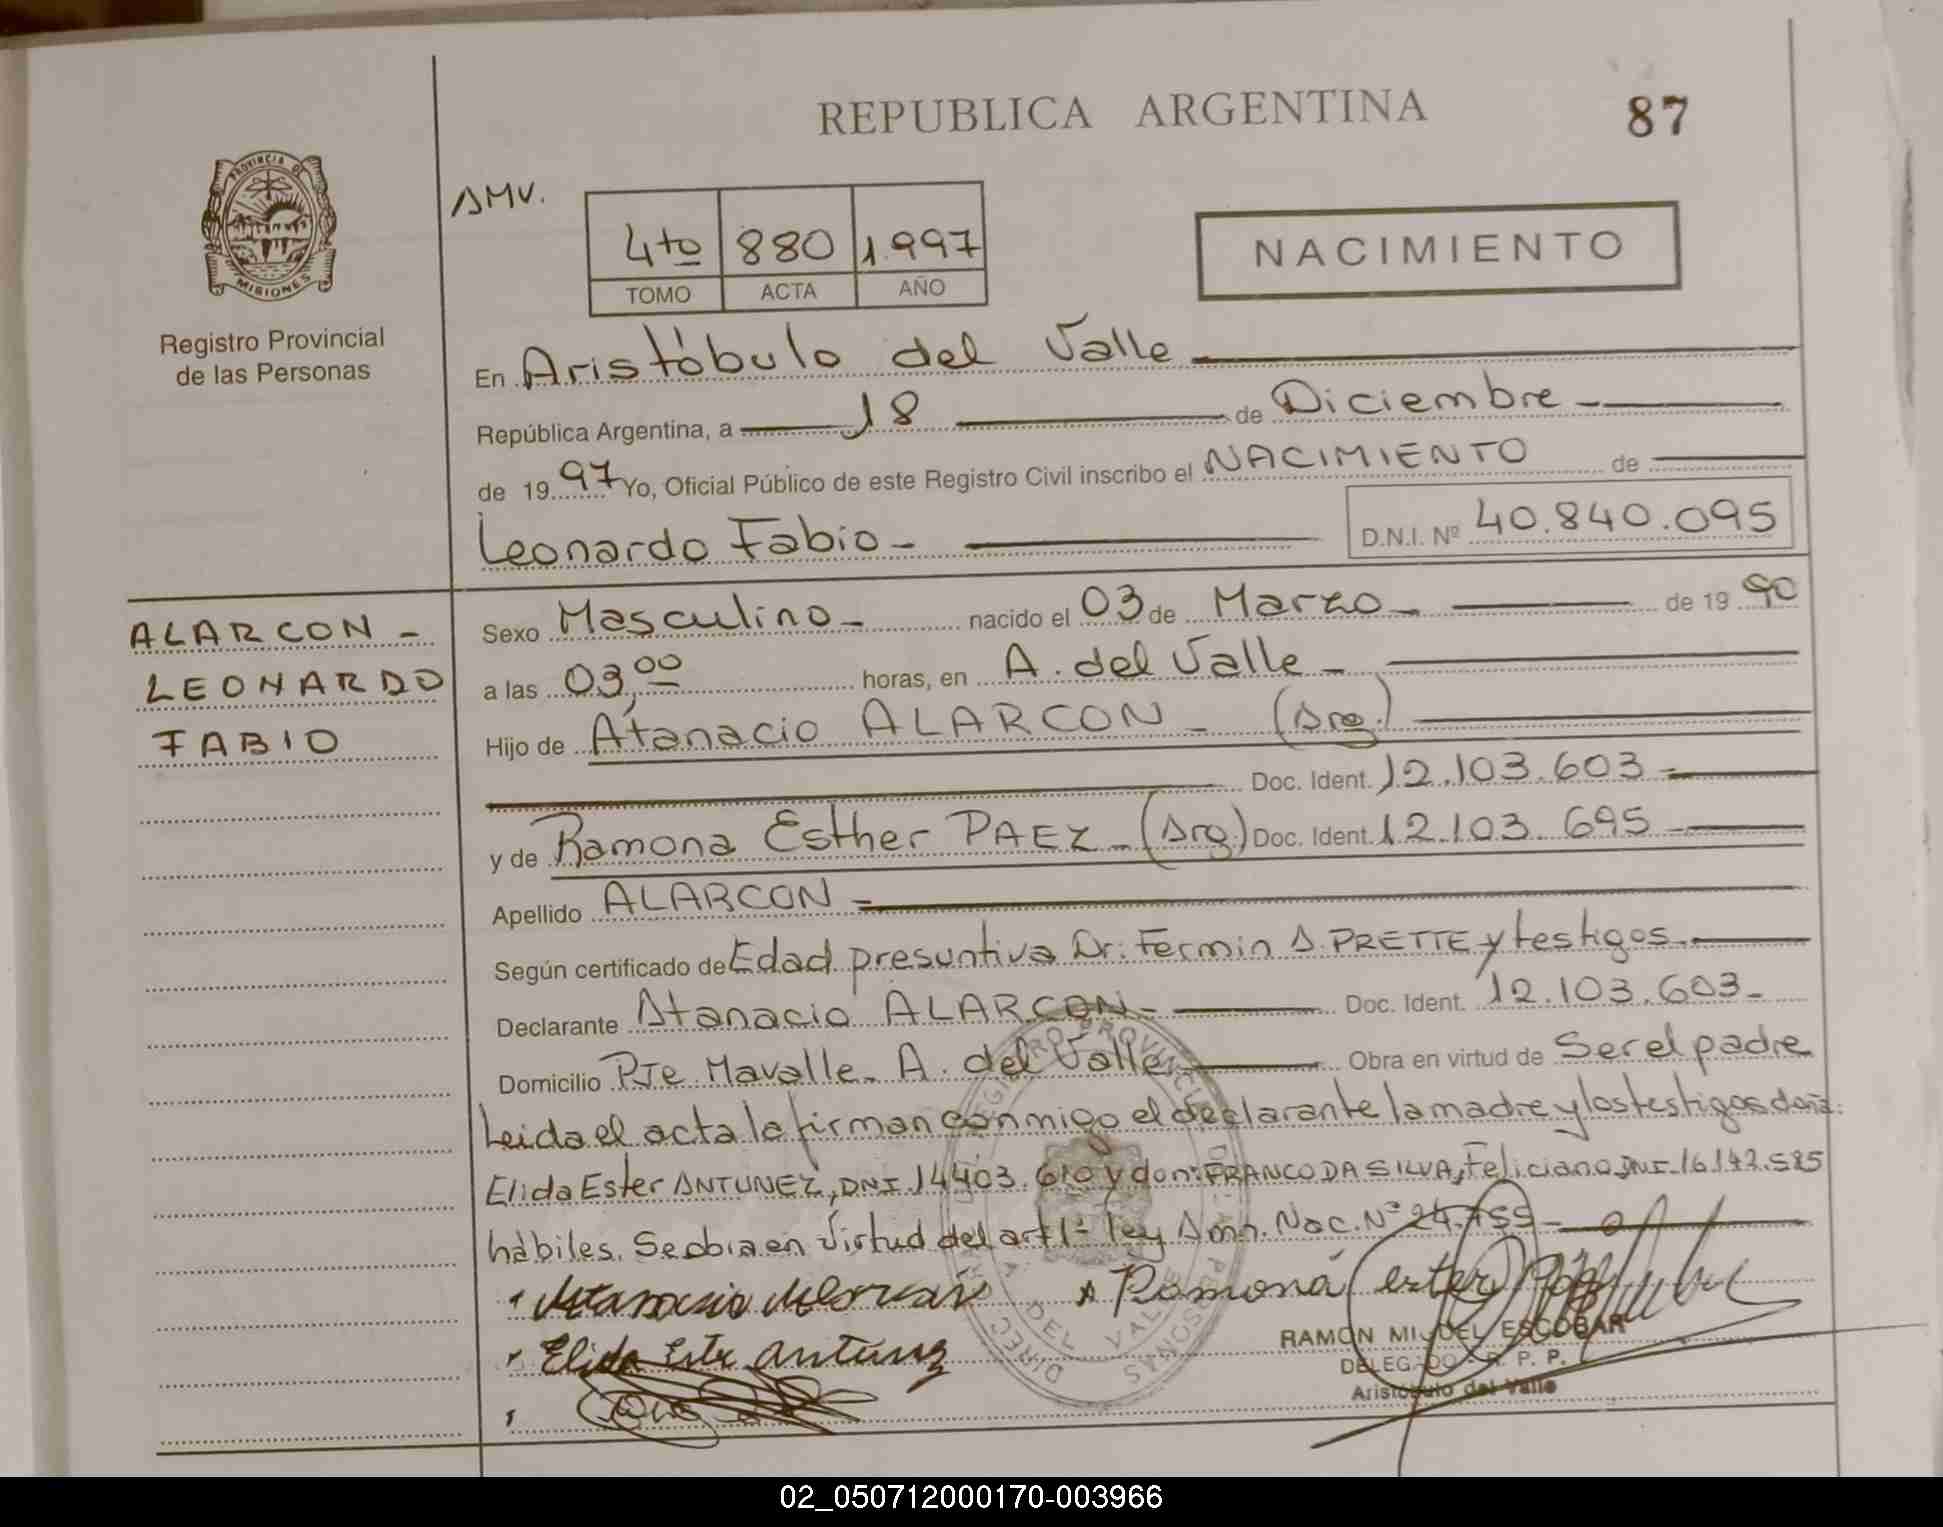 REPUBLICA ARGENTINA
87
PROVINCIA DE
MISIONES
Registro Provincial
de las Personas
AMV.
4to 880 1.997
TOMO ACTA AÑO
NACIMIENTO
En Aristóbulo del Valle
República Argentina, a 18 de Diciembre
de 1997 Yo, Oficial Público de este Registro Civil inscribo el NACIMIENTO de
Leonardo Fabio- D.N.I. Nº 40.840.095
ALARCON -
LEONARDO
FABIO
Sexo Masculino- nacido el 03 de Marzo- de 1990
a las 03,00 horas, en A. del Valle-
Hijo de Atanacio ALARCON - (Arg.)
Doc. Ident. 12.103.603-
y de Ramona Esther PAEZ - (Arg.) Doc. Ident. 12.103.695-
Apellido ALARCON-
Según certificado de Edad presuntiva Dr. Fermin A. PRETTE y testigos.
Declarante Atanacio ALARCON- Doc. Ident. 12.103.603-
Domicilio Pje Mavalle- A. del Valle- Obra en virtud de Ser el padre
Leida el acta la firman conmigo el declarante la madre y los testigos doña:
Elida Ester ANTUNEZ, DNI. 14403.610 y don: FRANCO DA SILVA, Feliciano DNI. 16.142.585
hábiles. Se obia en virtud del art 1º ley Amn. Nac. Nº 24.755-
Atanacio Alarcon Ramona ester Paez
Elida Ester Antunez
RAMON MIGUEL ESCOBAR
DELEGADO R. P. P.
Aristóbulo del Valle
02_050712000170-003966